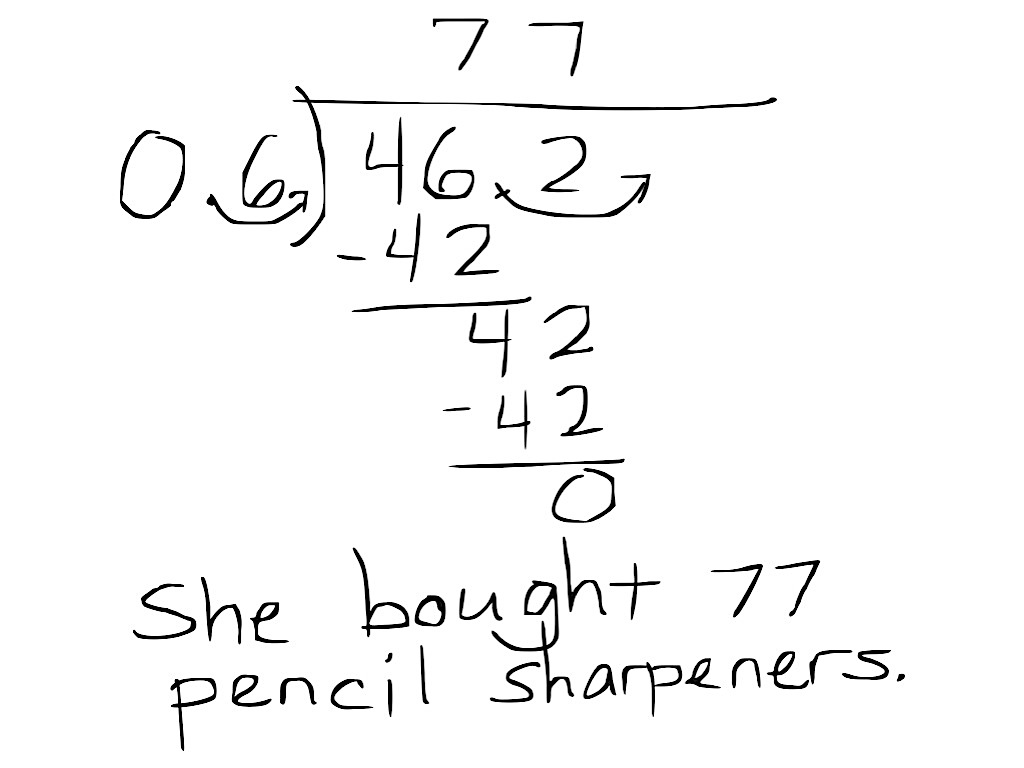 77
0.6)46.2
-42
42
-42
0
She bought 77
pencil sharpeners.